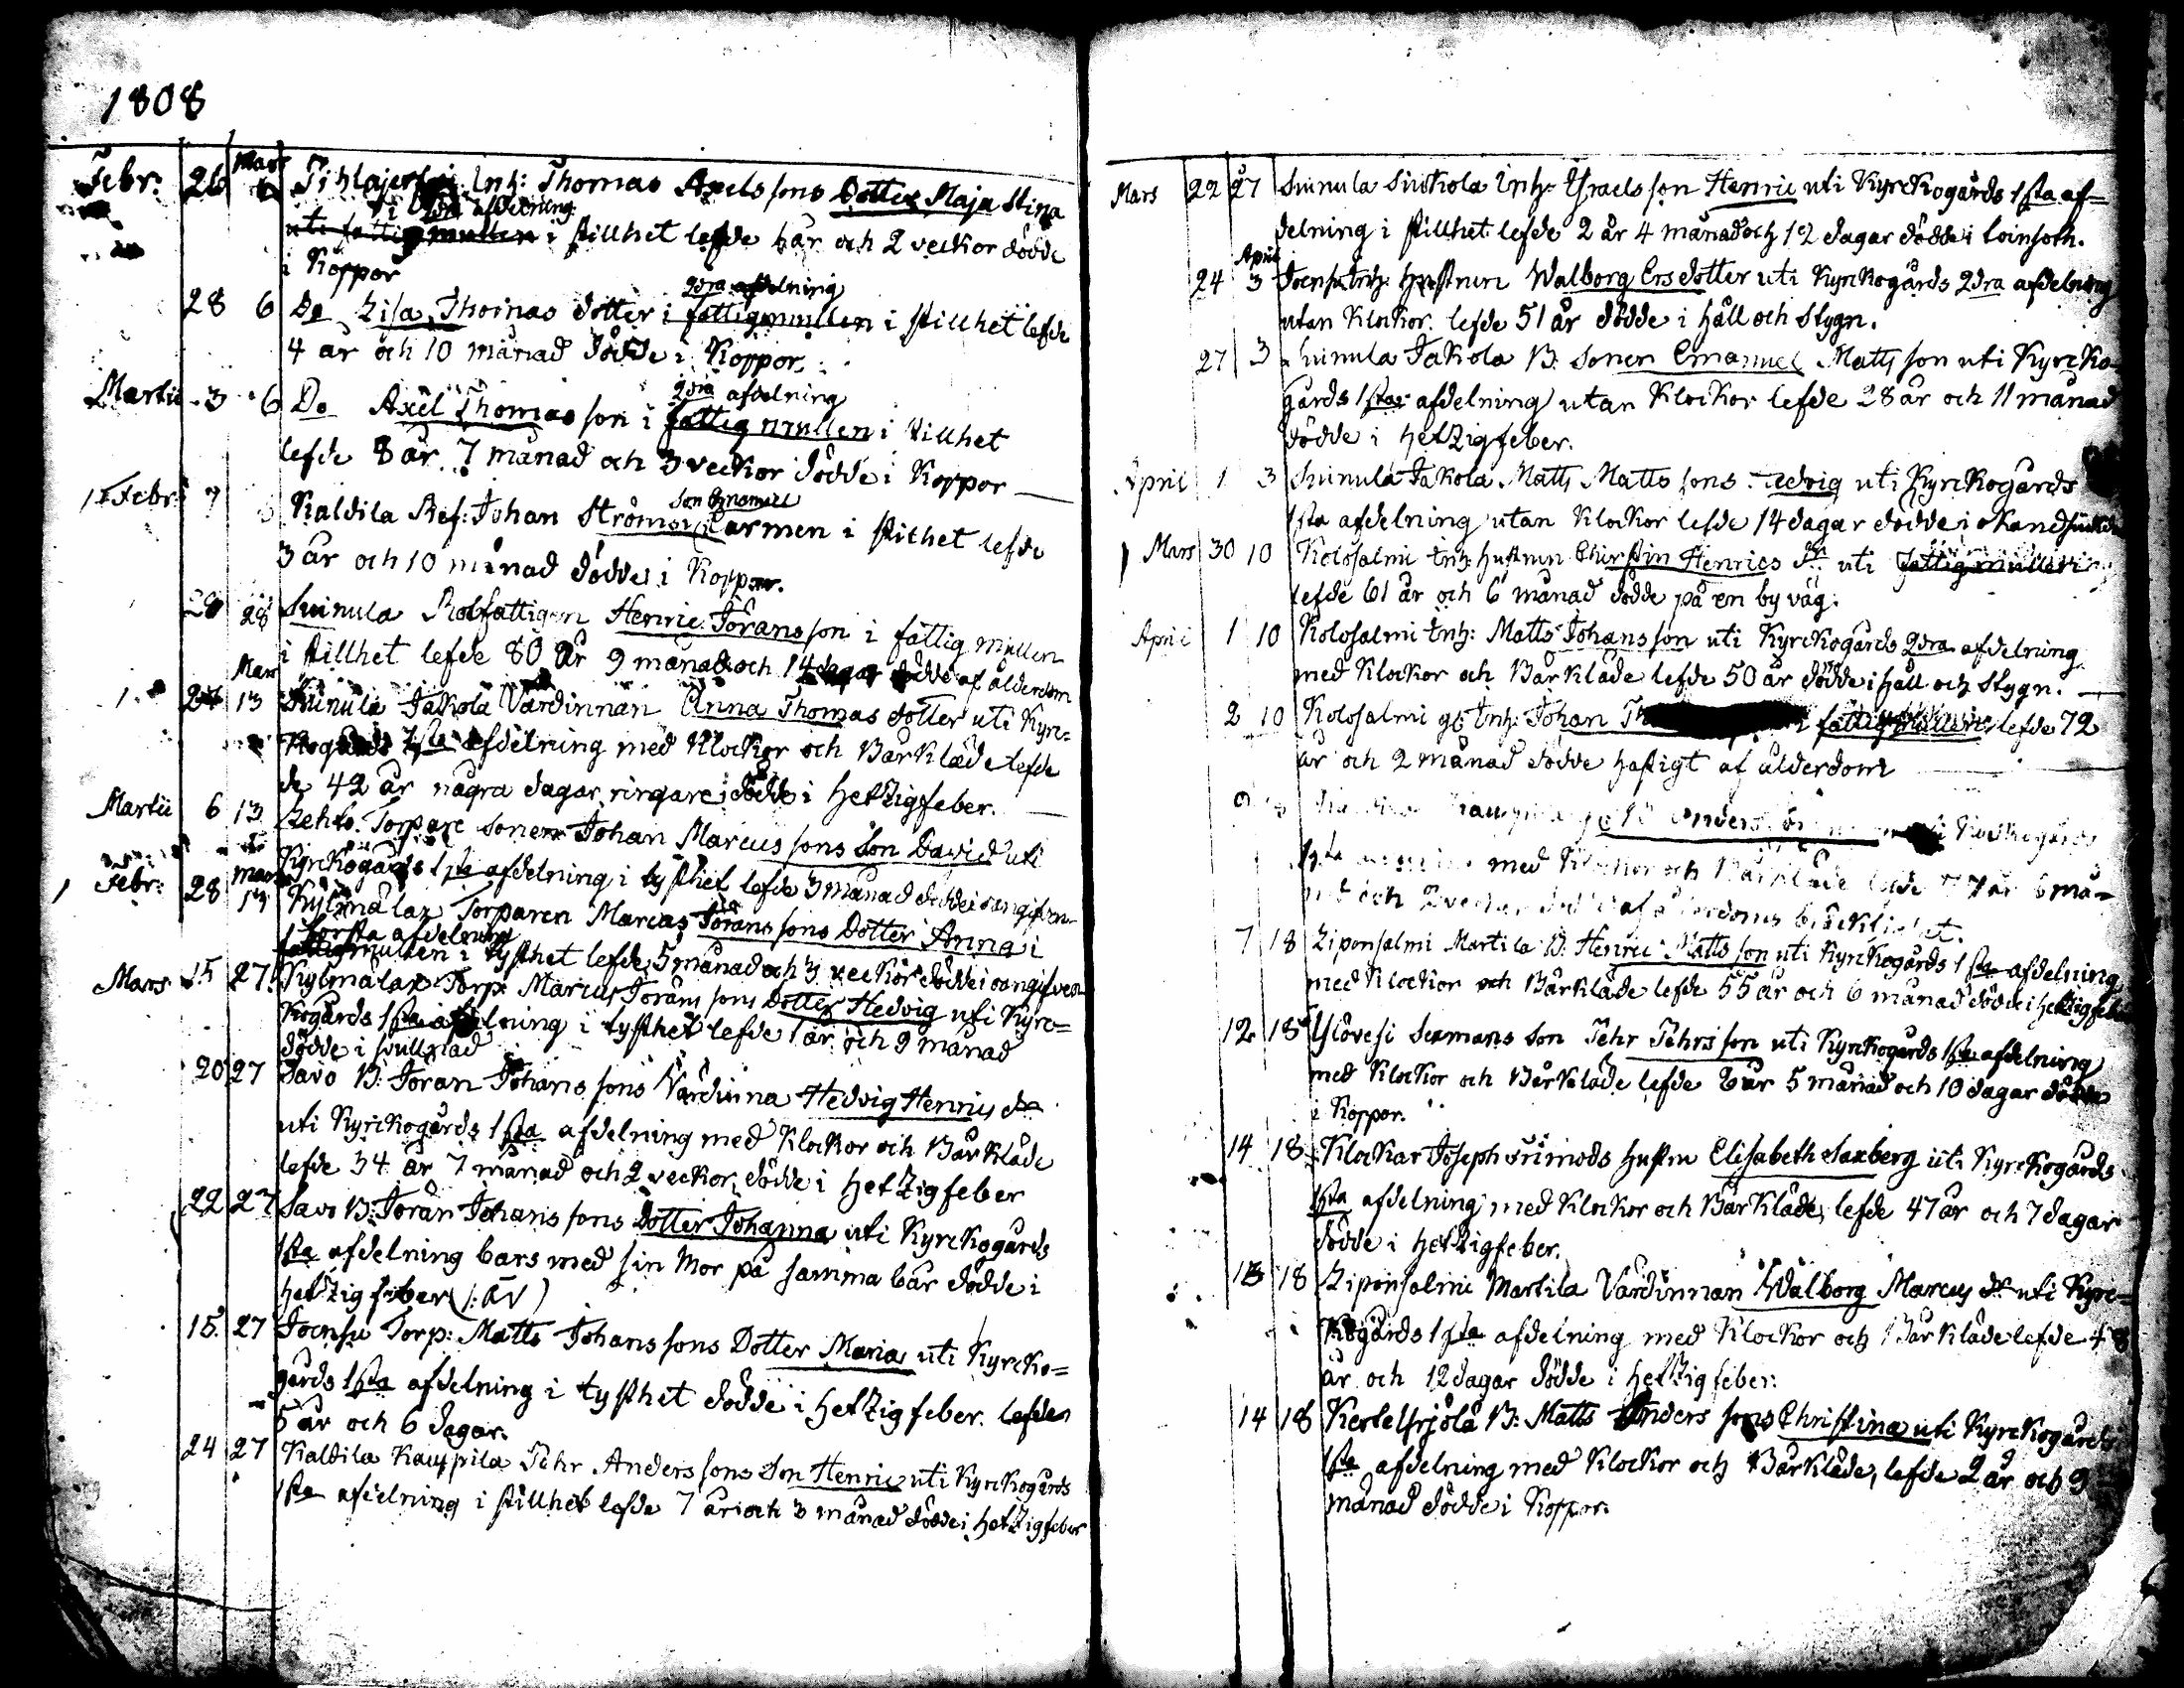 1808
Febr: 26 Mars 6 Inh: Thomas Axels sons Dotter Maja Stina
i 2dra afdelning
uti fattigmullen i stillhet lefde år och 2 veckor dödde
i Koppor
2dra afdelning
28 6 Do Lisa Thomas dotter i fattigmullen i stillhet lefde
4 år och 10 månad dödde i Koppor.
2dra afdelning
Martii 3 6 Do Axel Thomas son i fattigmullen i stillhet
lefde 8 år 7 månad och 3 veckor dödde i Koppor
Febr: 7 Kaldila Ref: Johan Ströms son i Larmen i stilhet lefde
3 år och 10 månad dödde i Koppor.
28 Suinula Rotfattigen Henric Jörans son i fattig mullen
i stillhet lefde 80 år 9 månad och 14 dagar dödde af ålderdom
Mars
24 13 Suinula Jakola Värdinnan Anna Thomas dotter uti Kyrc=
kogårds 1sta afdelning med Klockor och Bårkläde lefde
de 42 år några dagar ringare dödde i hetzigfeber.
Martii 6 13 Lehto Torpare sonen Johan Marcus sons Son David uti
Kyrckogårds 1sta afdelning i tysthet lefde 3 månad dödde i oangifven
Febr: 28 Mars 13 Kylmälax Torparen Marcus Jörans sons Dotter Anna i
första afdelning
fattigmullen i tysthet lefde 5 månad och 3 veckor dödde i oangifven
Mars 15 27 Kylmälax Torp: Marcus Jörans sons Dotter Hedvig uti Kyrc=
kogårds 1sta afdelning i tysthet lefde 1 år och 9 månad
dödde i svullnad
20 27 Savo B: Jöran Johans sons Värdinna Hedvig Henrics dr
uti Kyrckogårds 1sta afdelning med Klockor och Bårkläde
lefde 34 år 7 månad och 2 veckor, dödde i hetzigfeber
22 27 Savo B: Jöran Johans sons Dotter Johanna uti Kyrckogårds
1sta afdelning bars med sin Mor på samma bår dödde i
hetzigfeber
15 27 Joensu Torp: Matts Johans sons Dotter Maria uti Kyrcko=
gårds 1sta afdelning i tysthet dödde i hetzigfeber. lefde
5 år och 6 dagar.
24 27 Kaldila Kauppila Pehr Anders sons Son Henric uti Kyrckogårds
1sta afdelning i stillhet lefde 7 år och 3 månad dödde i hetzigfeber
Mars 22 27 Suinula Inh: Israels son Henric uti Kyrckogårds 1sta af=
delning i stillhet lefde 2 år 4 månad och 12 dagar dödde i loinsoth.
April
24 3 Joensu Inh: Hustrun Walborg Ersdotter uti Kyrckogårds 2dra afdelning
utan Klockor. lefde 51 år dödde i håll och stygn.
27 3 Suinula Jakola B. Sonen Emanuel Matts son uti Kyrcko=
gårds 1sta afdelning utan Klockor lefde 28 år och 11 månad
dödde i hetzigfeber.
April 1 3 Suinula Jakola Matts Matts sons Hedvig uti Kyrckogårds
1sta afdelning utan Klockor lefde 14 dagar dödde i okand
Mars 30 10 Kolosalmi Inh: hustrun Chirstin Henrics dr uti fattigmullen
lefde 61 år och 6 månad dödde på en by väg.
April 1 10 Kolosalmi Inh: Matts Johans son uti Kyrckogårds 2dra afdelning
med Klockor och Bårkläde lefde 50 år dödde i håll och stygn.
2 10 Kolosalmi gl: Inh: Johan i fattigmullen lefde 72
år och 2 månad dödde hastigt af ålderdom
Kyrckogårds
1sta med Klockor och Bårkläde lefde 77 år 6 må=
nad och 2 veckor dödde af ålderdoms bräcklighet.
7 18 Liponsalmi Martila B: Henric Matts son uti Kyrckogårds 1sta afdelning
med Klockor och Bårkläde lefde 55 år och 6 månad dödde i hetzigfeber
12 18 Ylövesi Sexmans Son Pehr Pehrs son uti Kyrckogårds 1sta afdelning
med Klockor och Bårkläde lefde år 5 månad och 10 dagar dödde
i Koppor.
14 18 Klockar Joseph hustru Elisabeth Saxberg uti Kyrckogårds
1sta afdelning med Klockor och Bårkläde, lefde 47 år och 7 dagar
dödde i hetzigfeber.
13 18 Liponsalmi Martila Värdinnan Walborg Marcus dr uti Kyrc=
kogårds 1sta afdelning med Klockor och Bårkläde lefde 48
år och 12 dagar dödde i hetzigfeber:
14 18 B: Matts Anders sons Christina uti Kyrckogårds
1sta afdelning med Klockor och Bårkläde, lefde 2 år och 9
månad dödde i Koppor.